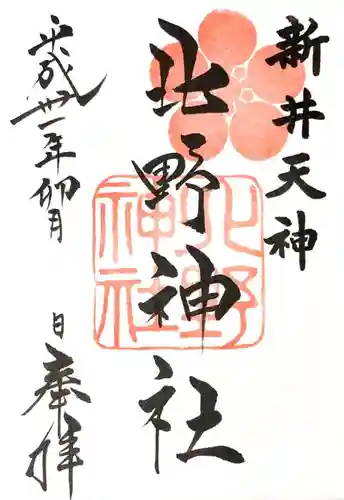 新井天神
北野神社
北野
神社
平成卅一年卯月
日
奉拝